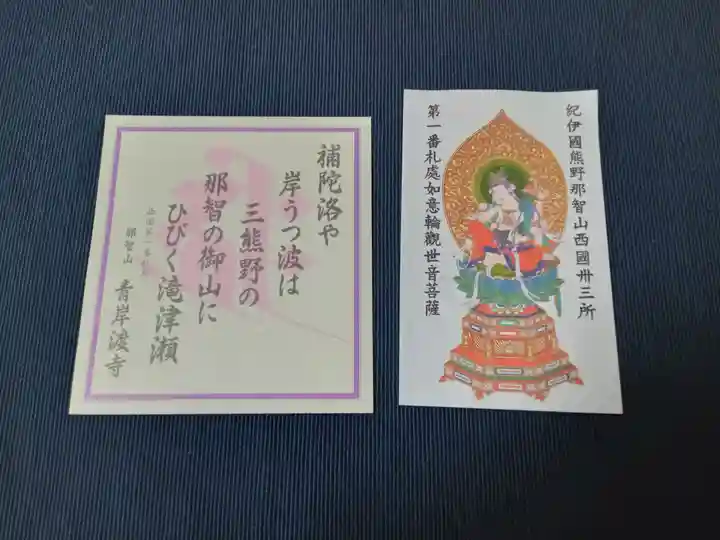 補陀洛や
岸うつ波は
三熊野の
那智の御山に
ひびく滝津瀬
那智山 青岸渡寺
紀伊國熊野那智山西國卅三所
第一番札處如意輪觀世音菩薩